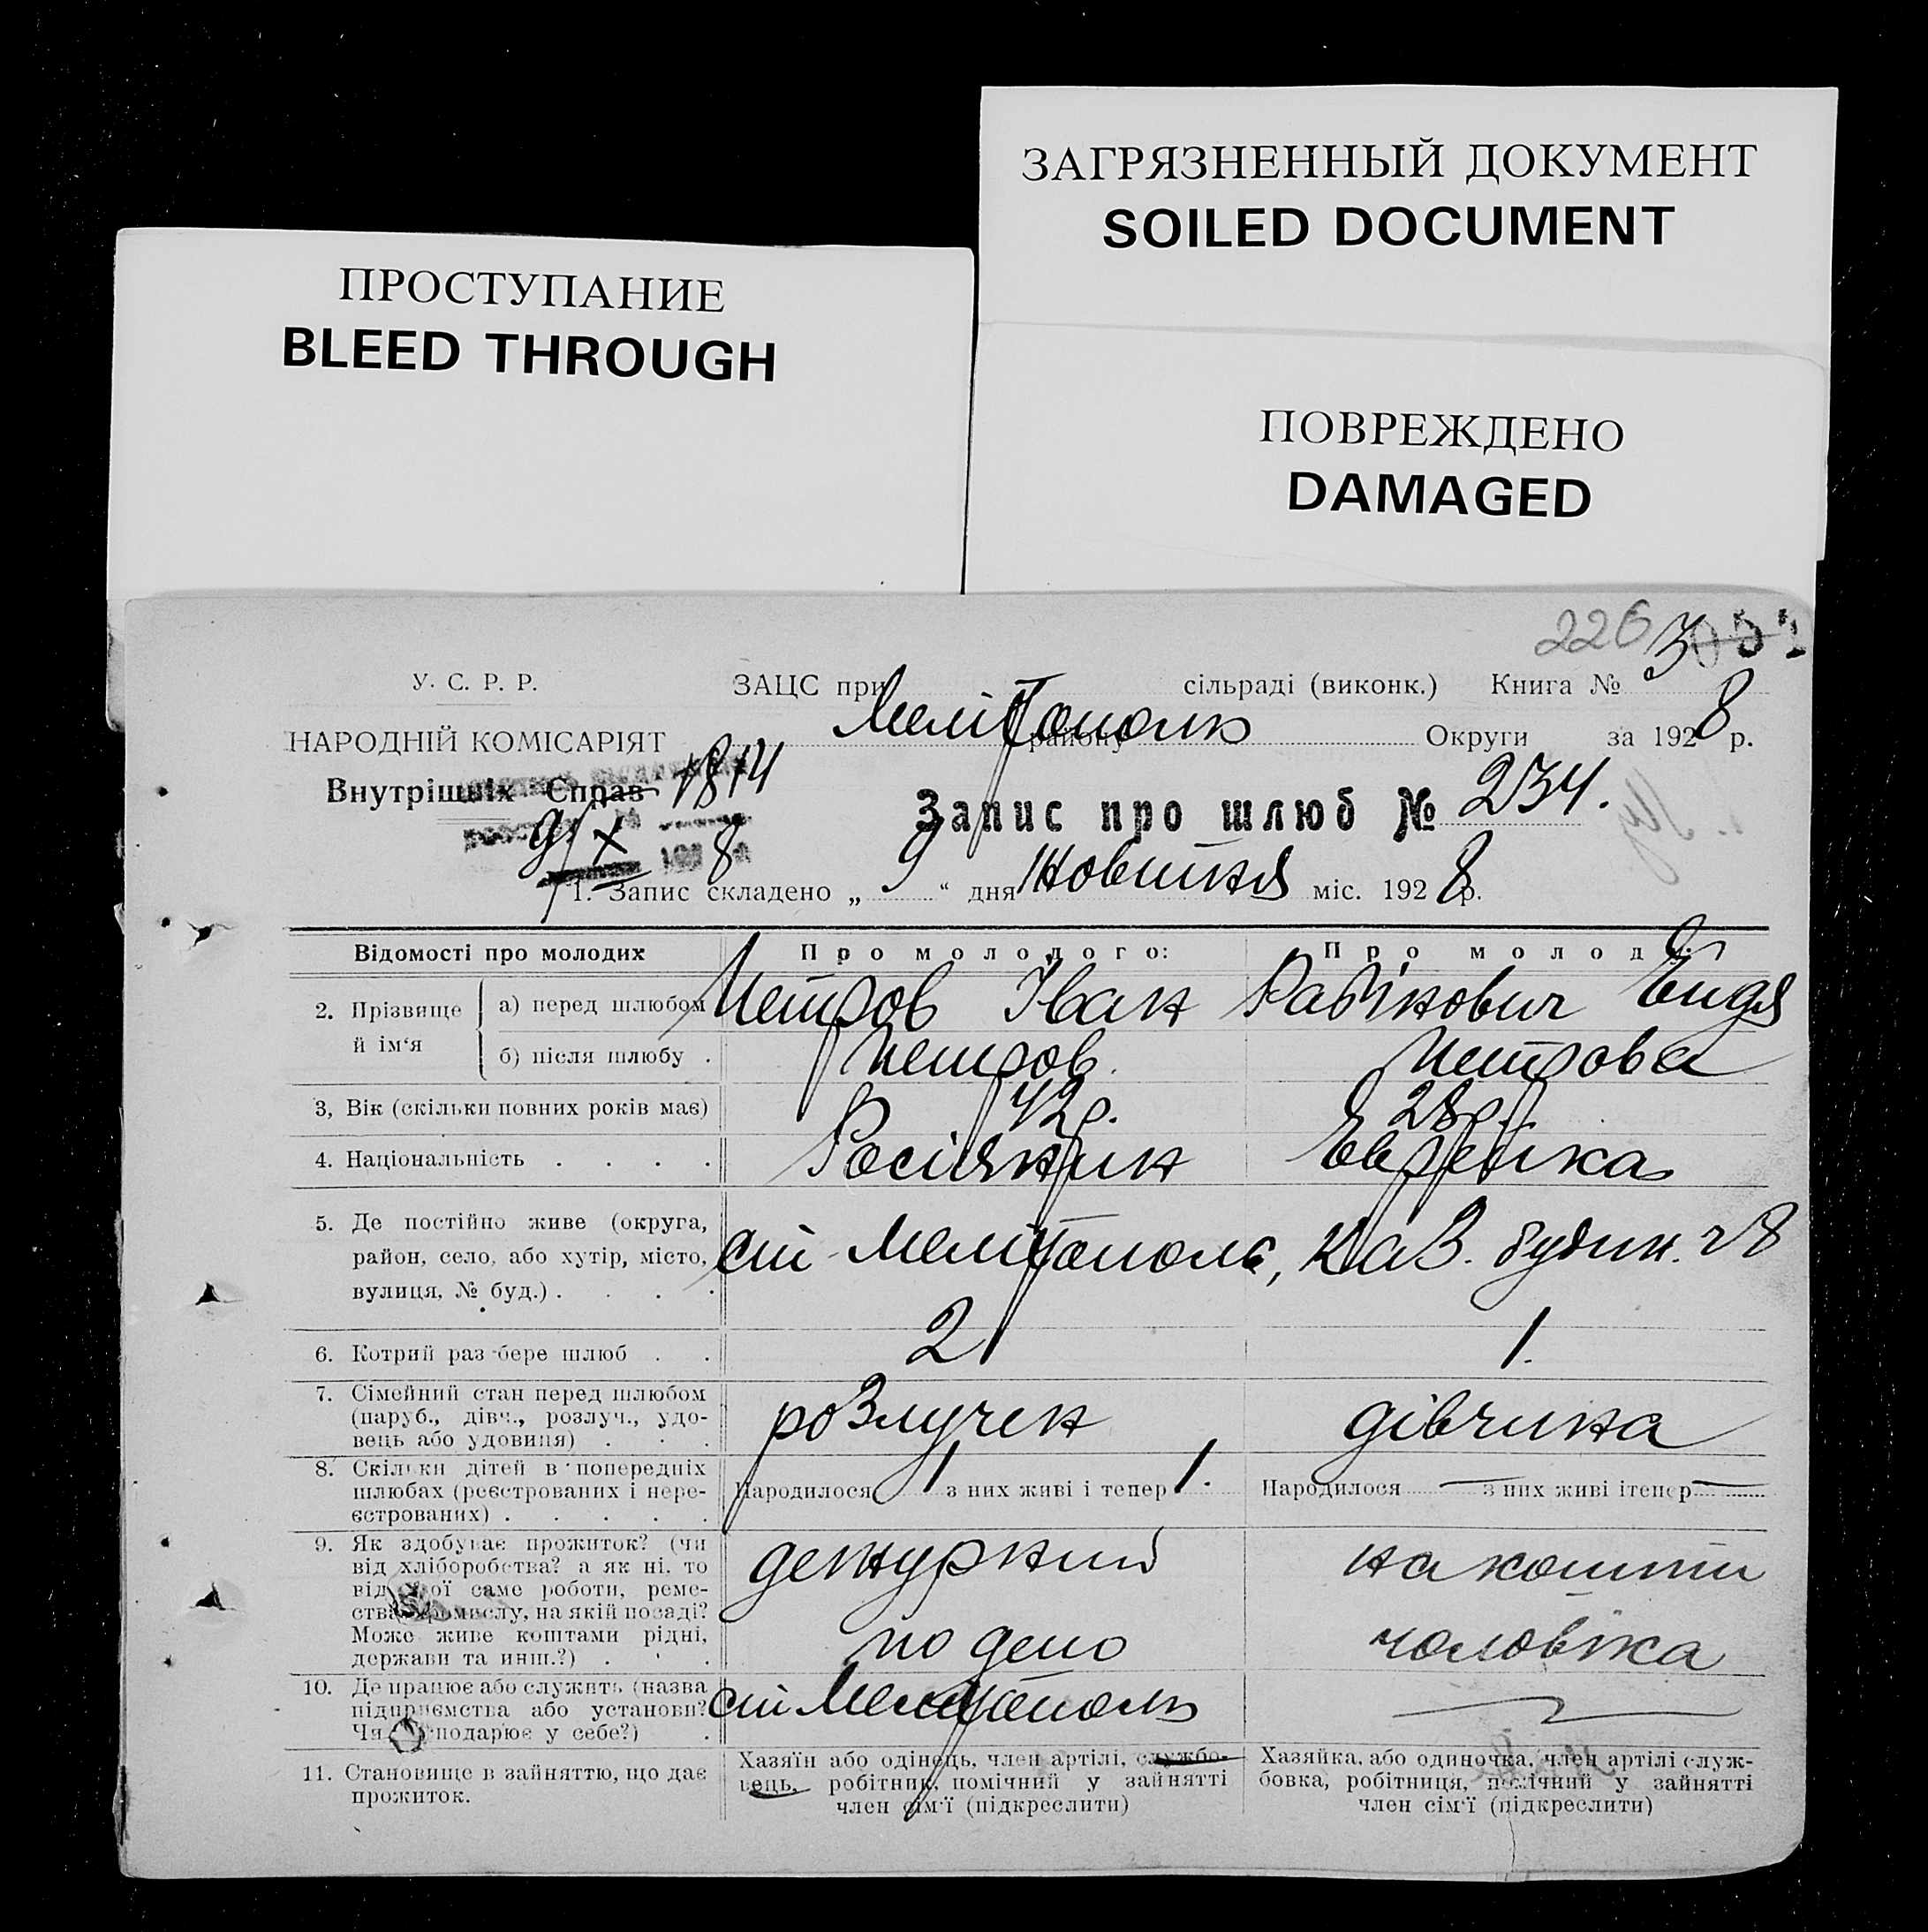 ЗАГРЯЗНЕННЫЙ ДОКУМЕНТ
SOILED DOCUMENT
ПРОСТУПАНИЕ
BLEED THROUGH
ПОВРЕЖДЕНО
DAMAGED
226
У. С. Р. Р.
ЗАЦС при сільраді (виконк.) Книга № 3
НАРОДНІЙ КОМІСАРІЯТ
Мелітополь району Округи за 1928 р.
Внутрішніх Справ 1814
Запис про шлюб № 234.
9/X 8
1. Запис складено „ 9 “ дня жовтня міс. 1928 р.
Відомості про молодих Про молодого: Про молоду:
2. Прізвище й ім‘я
а) перед шлюбом Петров Іван Рабінович Ендя
б) після шлюбу . Петров. Петрова
3, Вік (скільки повних років має) 42 р. 28 р.
4. Національність . . . . Росіянин Еврейка
5. Де постійно живе (округа,
район, село, або хутір, місто,
вулиця, № буд.) . . . .
ст Мелітополь, каз. будин. 28
6. Котрий раз бере шлюб . . 2 1.
7. Сімейний стан перед шлюбом
(паруб., дівч., розлуч., удо-
вець або удовиця) . . .
розлучен дівчина
8. Скільки дітей в попередніх
шлюбах (реєстрованих і нере-
єстрованих) . . . . .
Народилося 1 з них живі і тепер 1. Народилося — з них живі і тепер —
9. Як здобуває прожиток? (чи
від хліборобства? а як ні, то
від якої саме роботи, реме-
ства, промислу, на якій посаді?
Може живе коштами рідні,
держави та инш.?) . . .
дежурний на кошти
по депо чоловіка
10. Де працює або служить (назва
підприємства або установи?
Чи господарює у себе?) .
ст Мелітополь
11. Становище в зайняттю, що дає
прожиток.
Хазяїн або одінець, член артілі, службо-
вець, робітник, помічний у зайнятті
член сім‘ї (підкреслити)
Хазяйка, або одиночка, член артілі служ-
бовка, робітниця, помічний у зайнятті
член сім‘ї (підкреслити)